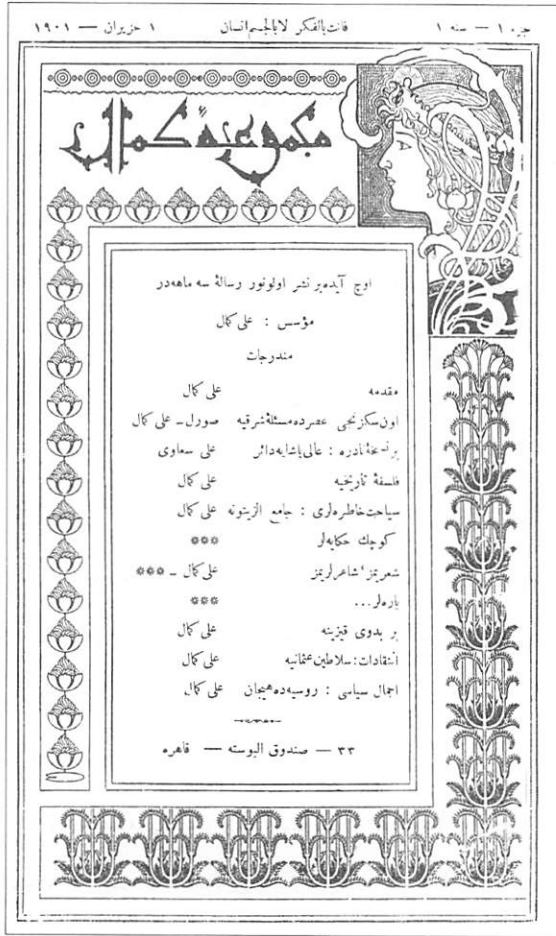 جزء ١ — سنه ١ فانت بالفكر لا بالجسم انسان ١ حزيران — ١٩٠١
مجموعهٔ كمال
اوچ آيده بر نشر اولونور رسالهٔ سه ماهه در
مؤسس : على كمال
مندرجات
مقدمه على كمال
اون سكزنجى عصرده مسئلهٔ شرقيه صورل ـ على كمال
بر نسخهٔ نادره : عالى پاشايه دائر على سعاوى
فلسفهٔ تاريخيه على كمال
سياحت خاطره لرى : جامع الزيتونه على كمال
كوچك حكايه لر ***
شعريمز ، شاعرلريمز على كمال ـ ***
پاره لر... ***
بر بدوى قيزينه على كمال
انتقادات : سلاطين عثمانيه على كمال
اجمال سياسى : روسيه ده هيجان على كمال
٣٣ — صندوق البوسته — قاهره